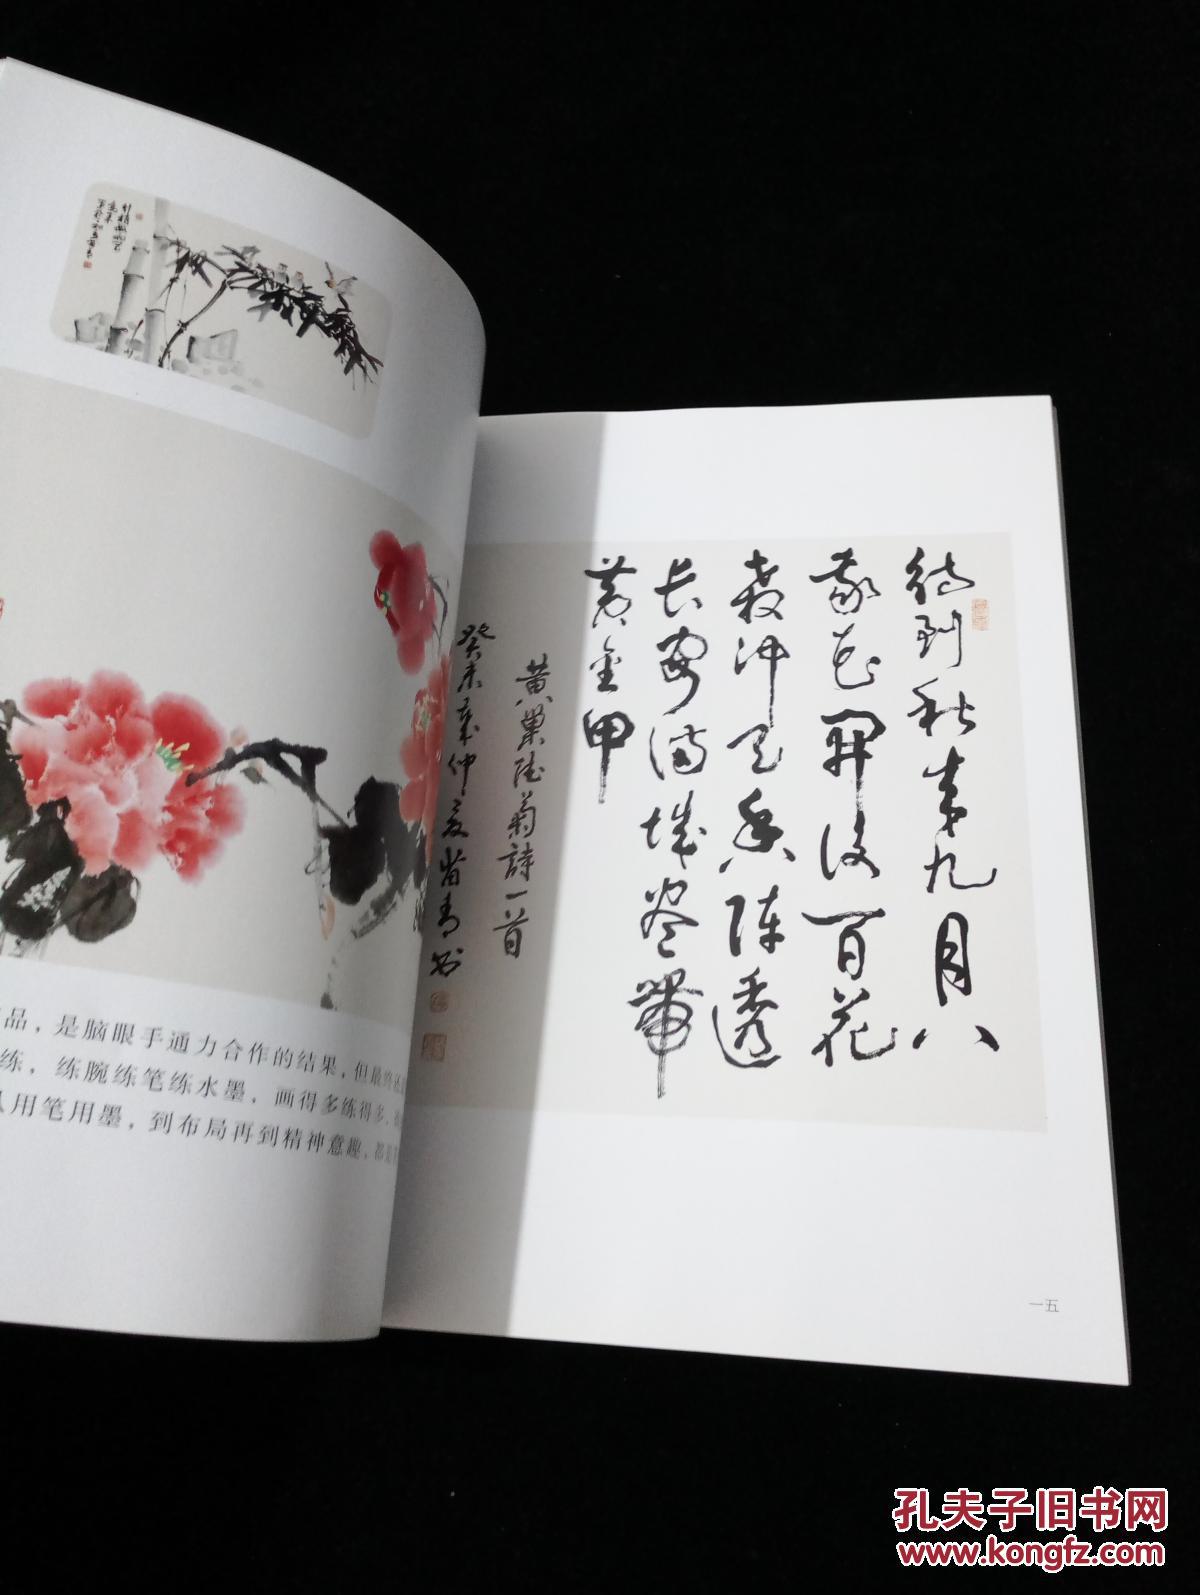 待到秋来九月八
我花開後百花
殺冲天香陣透
长安满城尽带
黄金甲
黄巢 菊詩一首
癸未年仲夏 青书
品，是脑眼手通力合作的结果，但最终还
练，练腕练笔练水墨，画得多练得多，
从用笔用墨，到布局再到精神意趣，都
一五
孔夫子旧书网
www.kongfz.com